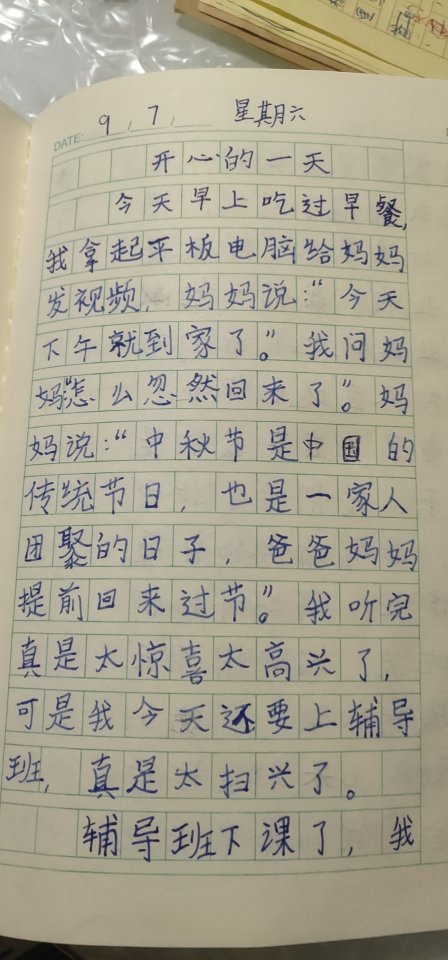 DATE: 9, 7, 星期六
开心的一天
今天早上吃过早餐,
我拿起平板电脑给妈妈
发视频, 妈妈说:“今天
下午就到家了”。我问妈
妈“怎么忽然回来了”。妈
妈说:“中秋节是中国的
传统节日, 也是一家人
团聚的日子, 爸爸妈妈
提前回来过节”。我听完
真是太惊喜太高兴了,
可是我今天还要上辅导
班, 真是太扫兴了。
辅导班下课了, 我